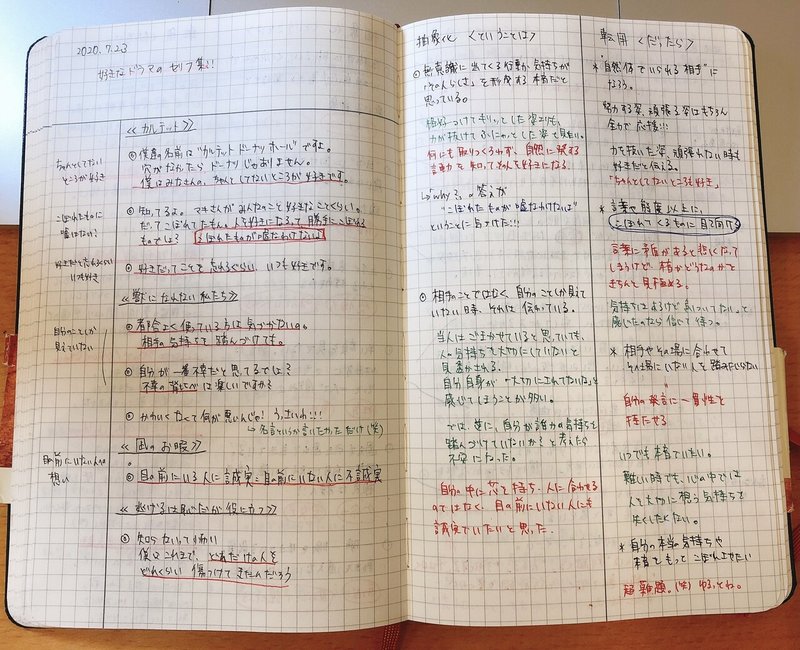 2020.7.23
好きなドラマのセリフ集!!
≪カルテット≫
ちゃんとしてない
ところが好き
◎僕達の名前は"カルテットドーナツホール"ですよ。
穴がなかったらドーナツじゃありません。
僕はみなさんの、ちゃんとしてないところが好きです。
こぼれたものに
嘘はない?
◎知ってるよ。マキさんがみんなのこと好きなことくらい。
だってこぼれてたもん。人を好きになるって勝手にこぼれる
ものでしょ?こぼれたものが嘘なわけないよ
好きだと忘れるくらい
いつも好き
◎好きだってことを忘れるぐらい、いつも好きです。
≪獣になれない私たち≫
自分のことしか
見えていない
◎都合よく使っている方は気づかないの。
相手の気持ちを踏んづけてても。
◎自分が一番不幸だと思ってるでしょ?
不幸の背比べは楽しいですか?
◎かわいくなくて何が悪いんじゃ!うっさいわ!!!
↳名言というか言いたかっただけ(笑)
≪凪のお暇≫
目の前にいない人への
想い
◎目の前にいる人に誠実=目の前にいない人に不誠実
≪逃げるは恥だが役に立つ≫
◎知らないってこわい
僕はこれまで、どれだけの人を
どれくらい傷つけてきたんだろう
抽象化 <ということは>
◎無意識に出てくる行動や気持ちが
"その人らしさ"を形成する本音だと
思っている。
格好つけてキリッとした姿よりも、
力が抜けてふにゃっとした姿を見たい。
何にも取りつくろわず、自然に発する
言動を知ってその人を好きになる。
↳「why?」の答えが
"こぼれたものが嘘なわけないよ"
ということに気づけた!!!
◎相手のことではなく、自分のことしか見えて
いない時、それは伝わっている。
当人はごまかせていると思っていても、
人の気持ちを大切にしていないと
見透かされる。
自分自身が"大切にされてないな"と
感じてしまうことが多い。
では、逆に、自分が誰かの気持ちを
踏んづけていないか?と考えたら
不安になった。
自分の中に芯を持ち、人に合わせる
のではなく、目の前にいない人にも
誠実でいたいと思った。
転用 <だったら>
*"自然体でいられる相手"に
なろう。
努力する姿、頑張る姿はもちろん
全力で応援!!!
力を抜いた姿、頑張れない時も
好きだと伝える。
「ちゃんとしてないところも好き」
*言葉や態度以上に、
こぼれてくるものに目を向ける
言葉に矛盾があると悲しくなって
しまうけど、本音がどうなのかを
きちんと見極める。
気持ちはあるけど気づいてない、と
感じたのなら信じて待つ。
*相手やその場に合わせて
その場にいない人を踏みにじらない
自分の発言に一貫性を
持たせる
いつでも本音でいたい。
難しい時でも、心の中では
人を大切に想う気持ちを
失くしたくない。
*自分の本当の気持ちや
本音をもってこぼれさせたい
超難題。(笑) ゆるっとね。